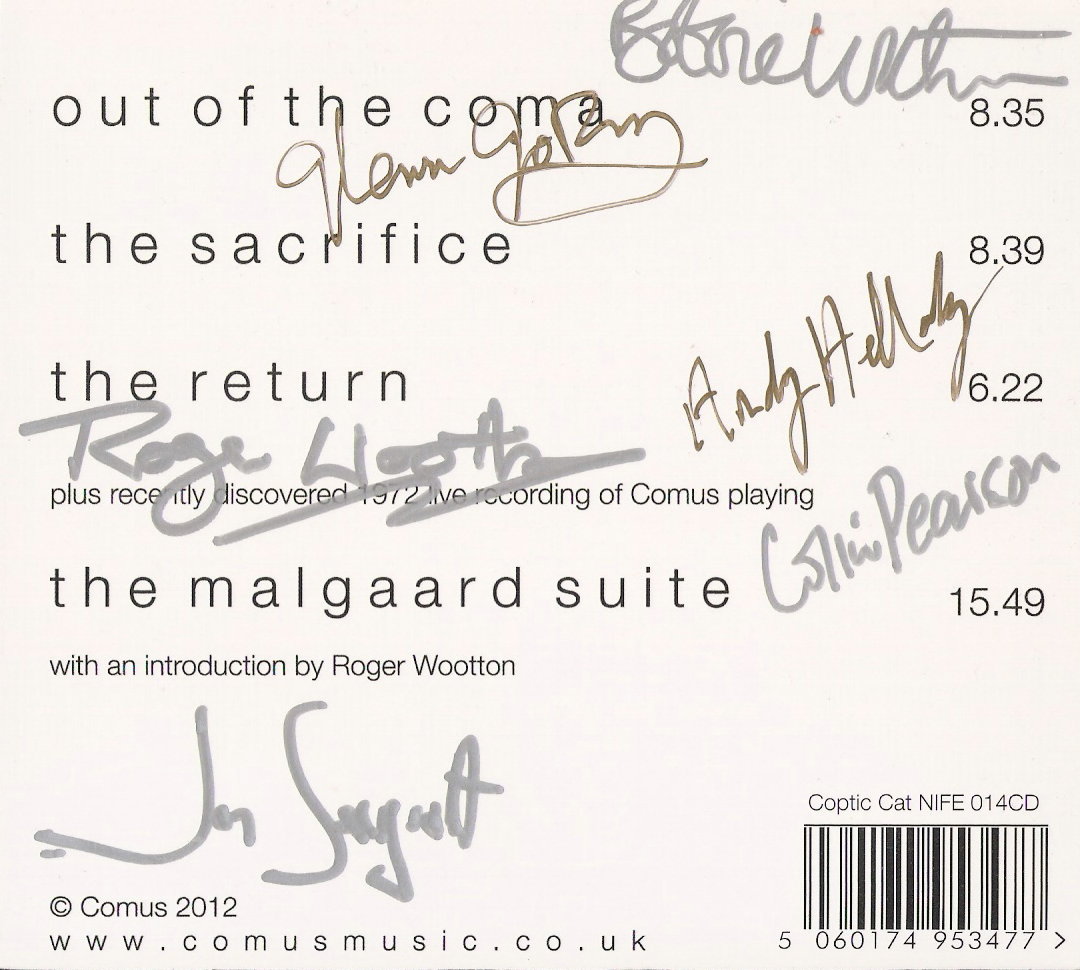 out of the coma 8.35
Glenn Goring
the sacrifice 8.39
Andy Hellaby
the return 6.22
Roger Wootton
plus recently discovered 1972 live recording of Comus playing
Colin Pearson
the malgaard suite 15.49
with an introduction by Roger Wootton
Jon Seagroatt
Coptic Cat NIFE 014CD
© Comus 2012
www.comusmusic.co.uk
5 060174 953477 >